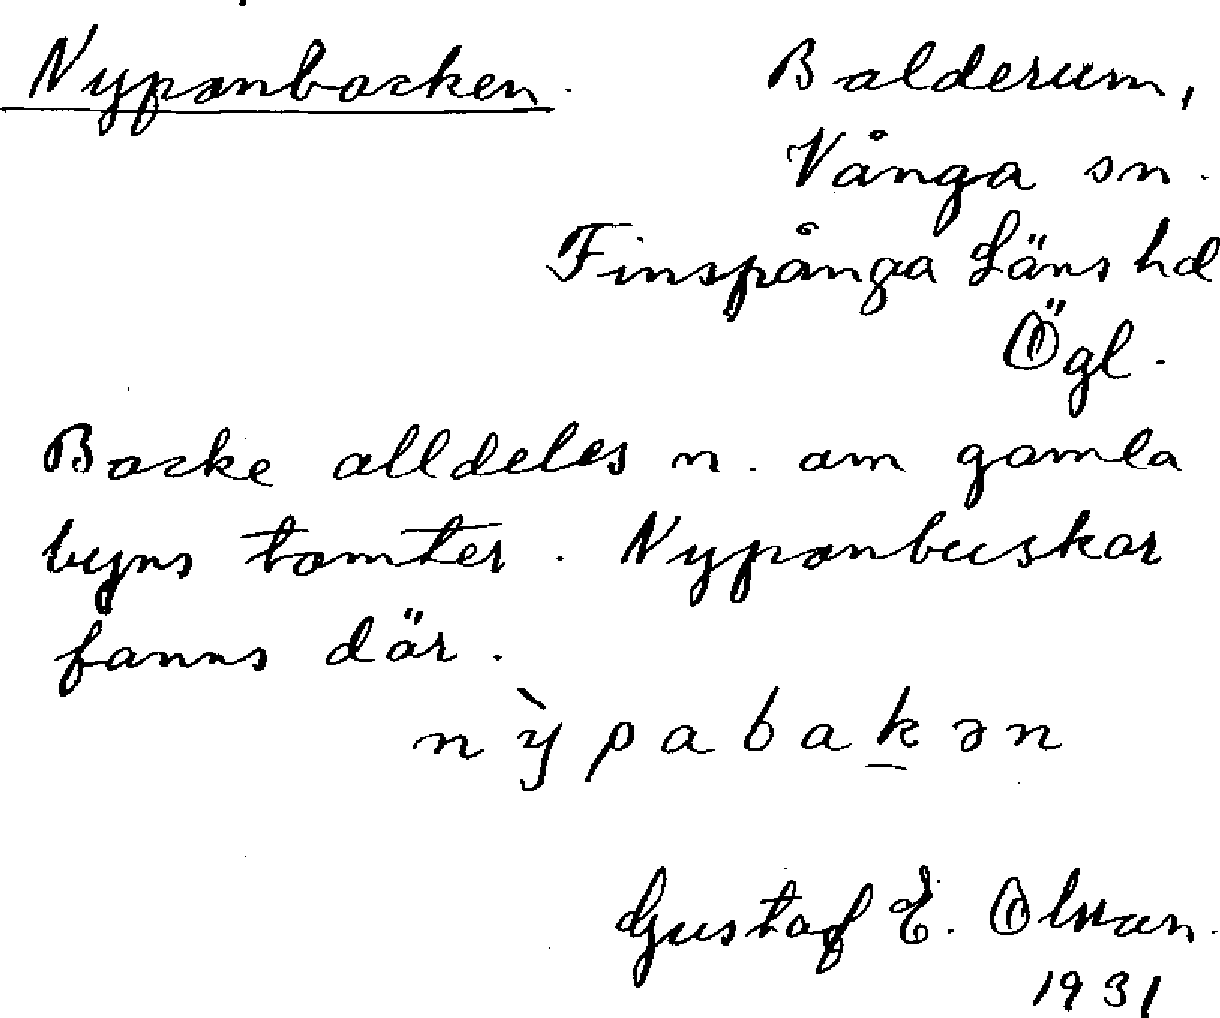 Nyponbacken. Balderum,
Vånga sn.
Finspånga Läns hd
Ögl.
Backe alldeles n. om gamla
byns tomter. Nyponbuskar
fanns där.
nỳpabak̲ən
Gustaf E. Olsson.
1931